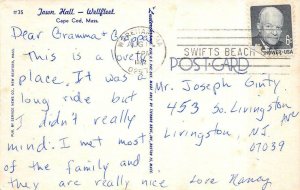 #35 Town Hall - Wellfleet
Cape Cod, Mass.
Dear Gramma + Grampa
This is a lovely
place. It was a
long ride but
I didn't really
mind. I met most
of the family and
they are really nice
SWIFTS BEACH
6¢ USA
POST CARD
Mr. Joseph Ginty
453 So. Livingston Ave
Livingston, N.J.
07039
Love Nancy